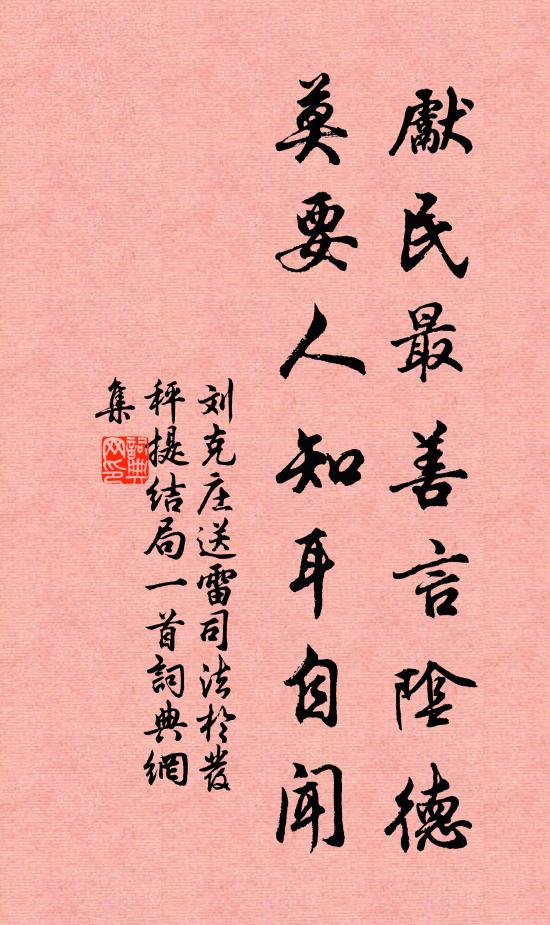 獻民最善言陰德
莫要人知耳自聞
刘克庄送雷司法柃發
秤提结局一首詞典網
集
詞典网印